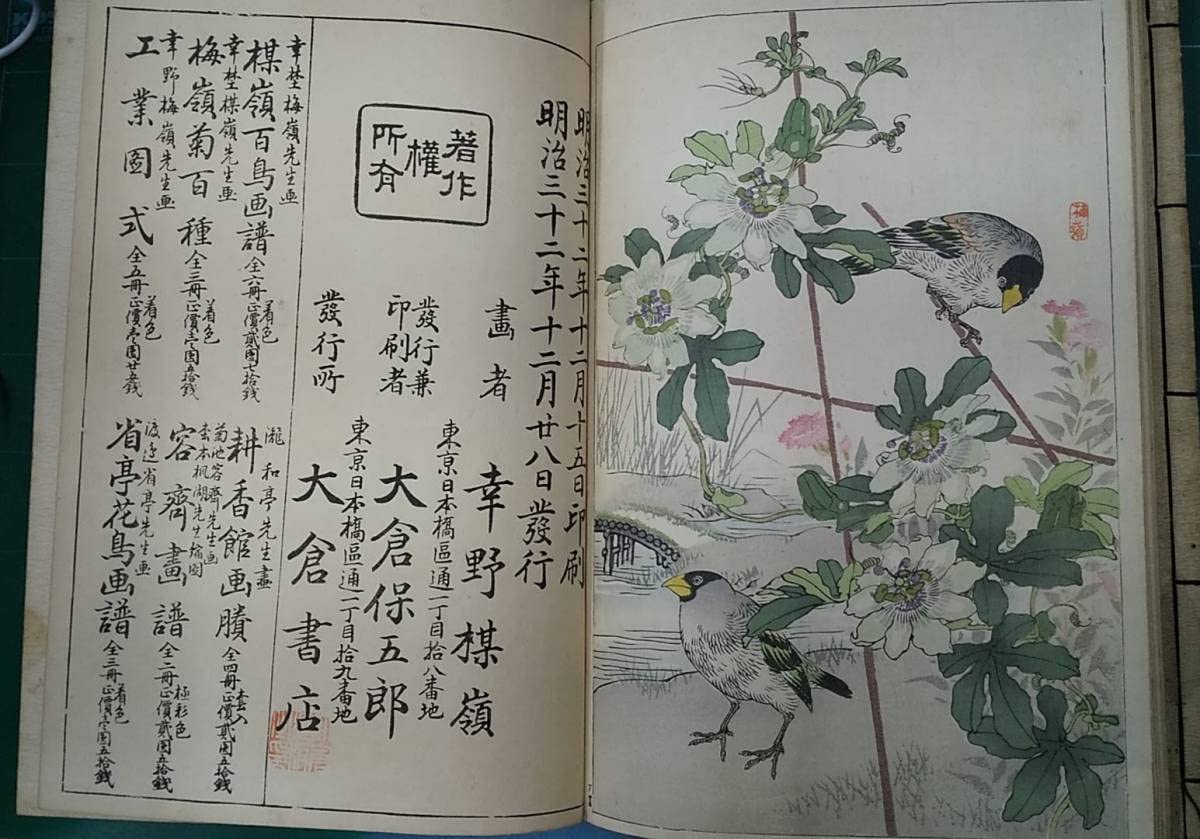 明治三十二年十二月十五日印刷
明治三十二年十二月廿八日発行
著作
權
所有
畫者
幸野楳嶺
東京日本橋區通一丁目拾八番地
發行兼
印刷者
大倉保五郎
東京日本橋區通一丁目拾九番地
發行所
大倉書店
幸埜梅嶺先生画
楳嶺百鳥画譜
全六冊
着色
正價貳圓七拾錢
幸埜楳嶺先生画
梅嶺菊百種
全三冊
着色
正價壱圓五拾錢
幸野梅嶺先生画
工業圖式
全五冊
着色
正價壱圓廿五錢
瀧和亭先生畫
耕香館画賸
全四冊
正價貳圓五拾錢
菊池容齊先生画
松本楓湖先生縮圖
容齊畫譜
全二冊
極彩色
正價貳圓五拾錢
渡辺省亭先生画
省亭花鳥画譜
全三冊
着色
正價壱圓五拾錢
楳嶺